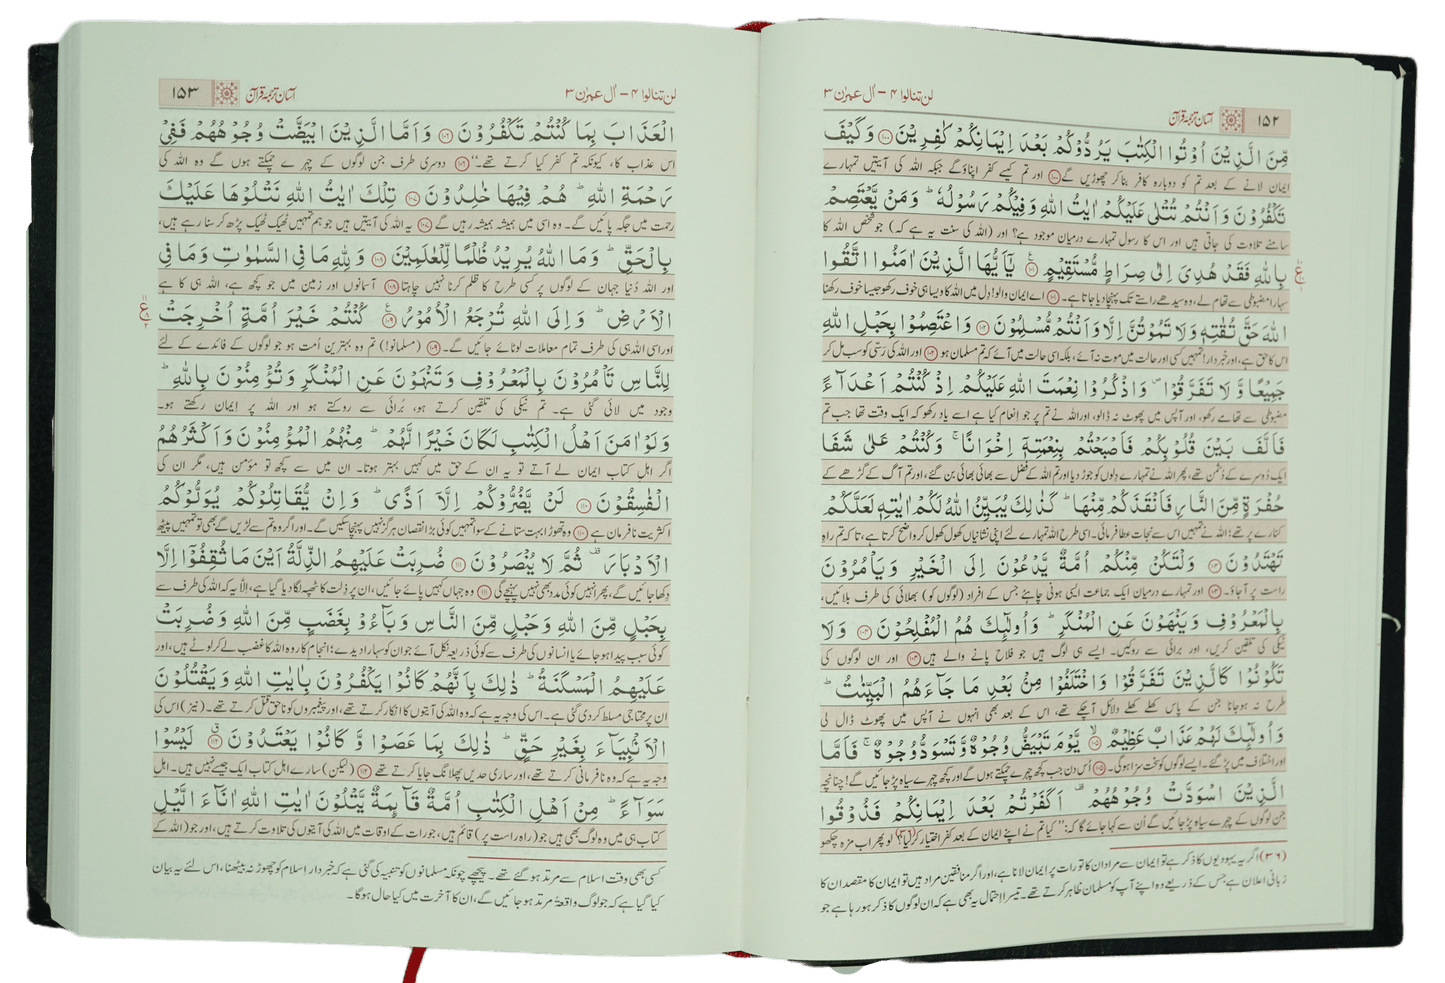 لن تنالوا ۴ – اٰل عمرٰن ۳
آسان ترجمۂ قرآن
۱۵۲
مِّنَ الَّذِيْنَ اُوْتُوا الْكِتٰبَ يَرُدُّوْكُمْ بَعْدَ اِيْمَانِكُمْ كٰفِرِيْنَ ﴿۱۰۰﴾ وَكَيْفَ
ایمان لانے کے بعد تم کو دوبارہ کافر بنا کر چھوڑیں گے ﴿۱۰۰﴾ اور تم کیسے کفر اپناؤ گے جبکہ اللہ کی آیتیں تمہارے
تَكْفُرُوْنَ وَاَنْتُمْ تُتْلٰى عَلَيْكُمْ اٰيٰتُ اللّٰهِ وَفِيْكُمْ رَسُوْلُهٗ ؕ وَمَنْ يَّعْتَصِمْ
سامنے تلاوت کی جاتی ہیں اور اس کا رسول تمہارے درمیان موجود ہے؟ اور (اللہ کی سنت یہ ہے کہ) جو شخص اللہ کا
بِاللّٰهِ فَقَدْ هُدِيَ اِلٰى صِرَاطٍ مُّسْتَقِيْمٍ ﴿۱۰۱﴾ يٰٓاَيُّهَا الَّذِيْنَ اٰمَنُوا اتَّقُوا
سہارا مضبوطی سے تھام لے، وہ سیدھے راستے تک پہنچا دیا جاتا ہے۔ ﴿۱۰۱﴾ اے ایمان والو! دِل میں اللہ کا ویسا ہی خوف رکھو جیسا خوف رکھنا
اللّٰهَ حَقَّ تُقٰتِهٖ وَلَا تَمُوْتُنَّ اِلَّا وَاَنْتُمْ مُّسْلِمُوْنَ ﴿۱۰۲﴾ وَاعْتَصِمُوْا بِحَبْلِ اللّٰهِ
اس کا حق ہے، اور خبردار! تمہیں کسی اور حالت میں موت نہ آئے، بلکہ اسی حالت میں آئے کہ تم مسلمان ہو ﴿۱۰۲﴾ اور اللہ کی رسّی کو سب مل کر
جَمِيْعًا وَّلَا تَفَرَّقُوْا ۪ وَاذْكُرُوْا نِعْمَتَ اللّٰهِ عَلَيْكُمْ اِذْ كُنْتُمْ اَعْدَآءً
مضبوطی سے تھامے رکھو، اور آپس میں پھوٹ نہ ڈالو، اور اللہ نے تم پر جو اِنعام کیا ہے اسے یاد رکھو کہ ایک وقت تھا جب تم
فَاَلَّفَ بَيْنَ قُلُوْبِكُمْ فَاَصْبَحْتُمْ بِنِعْمَتِهٖٓ اِخْوَانًا ۚ وَكُنْتُمْ عَلٰى شَفَا
ایک دُوسرے کے دُشمن تھے، پھر اللہ نے تمہارے دِلوں کو جوڑ دیا اور تم اللہ کے فضل سے بھائی بھائی بن گئے، اور تم آگ کے گڑھے کے
حُفْرَةٍ مِّنَ النَّارِ فَاَنْقَذَكُمْ مِّنْهَا ؕ كَذٰلِكَ يُبَيِّنُ اللّٰهُ لَكُمْ اٰيٰتِهٖ لَعَلَّكُمْ
کنارے پر تھے؛ اللہ نے تمہیں اس سے نجات عطا فرمائی۔ اسی طرح اللہ تمہارے لئے اپنی نشانیاں کھول کھول کر واضح کرتا ہے، تاکہ تم راہِ
تَهْتَدُوْنَ ﴿۱۰۳﴾ وَلْتَكُنْ مِّنْكُمْ اُمَّةٌ يَّدْعُوْنَ اِلَى الْخَيْرِ وَيَاْمُرُوْنَ
راست پر آجاؤ۔ ﴿۱۰۳﴾ اور تمہارے درمیان ایک جماعت ایسی ہونی چاہئے جس کے افراد (لوگوں کو) بھلائی کی طرف بلائیں،
بِالْمَعْرُوْفِ وَيَنْهَوْنَ عَنِ الْمُنْكَرِ ؕ وَاُولٰٓئِكَ هُمُ الْمُفْلِحُوْنَ ﴿۱۰۴﴾ وَلَا
نیکی کی تلقین کریں، اور برائی سے روکیں۔ ایسے ہی لوگ ہیں جو فلاح پانے والے ہیں ﴿۱۰۴﴾ اور ان لوگوں کی
تَكُوْنُوْا كَالَّذِيْنَ تَفَرَّقُوْا وَاخْتَلَفُوْا مِنْۢ بَعْدِ مَا جَآءَهُمُ الْبَيِّنٰتُ ؕ
طرح نہ ہوجانا جن کے پاس کھلے کھلے دلائل آچکے تھے، اس کے بعد بھی انہوں نے آپس میں پھوٹ ڈال لی
وَاُولٰٓئِكَ لَهُمْ عَذَابٌ عَظِيْمٌ ﴿۱۰۵﴾ يَّوْمَ تَبْيَضُّ وُجُوْهٌ وَّتَسْوَدُّ وُجُوْهٌ ۚ فَاَمَّا
اور اختلاف میں پڑ گئے۔ ایسے لوگوں کو سخت سزا ہوگی۔ ﴿۱۰۵﴾ اُس دن جب کچھ چہرے چمکتے ہوں گے اور کچھ چہرے سیاہ پڑ جائیں گے! چنانچہ
الَّذِيْنَ اسْوَدَّتْ وُجُوْهُهُمْ ۟ اَكَفَرْتُمْ بَعْدَ اِيْمَانِكُمْ فَذُوْقُوا
جن لوگوں کے چہرے سیاہ پڑ جائیں گے اُن سے کہا جائے گا کہ: ’’کیا تم نے اپنے ایمان کے بعد کفر اختیار کرلیا؟ لو پھر اب مزہ چکھو
(۳۶) اگر یہ یہودیوں کا ذکر ہے تو اِیمان سے مراد ان کا تورات پر ایمان لانا ہے، اور اگر منافقین مراد ہیں تو ایمان کا مقصد ان کا
زبانی اعلان ہے جس کے ذریعے وہ اپنے آپ کو مسلمان ظاہر کرتے تھے۔ تیسرا احتمال یہ بھی ہے کہ ان لوگوں کا ذکر ہو رہا ہے جو
لن تنالوا ۴ – اٰل عمرٰن ۳
آسان ترجمۂ قرآن
۱۵۳
الْعَذَابَ بِمَا كُنْتُمْ تَكْفُرُوْنَ ﴿۱۰۶﴾ وَاَمَّا الَّذِيْنَ ابْيَضَّتْ وُجُوْهُهُمْ فَفِيْ
اس عذاب کا، کیونکہ تم کفر کیا کرتے تھے۔‘‘ ﴿۱۰۶﴾ دوسری طرف جن لوگوں کے چہرے چمکتے ہوں گے وہ اللہ کی
رَحْمَةِ اللّٰهِ ؕ هُمْ فِيْهَا خٰلِدُوْنَ ﴿۱۰۷﴾ تِلْكَ اٰيٰتُ اللّٰهِ نَتْلُوْهَا عَلَيْكَ
رحمت میں جگہ پائیں گے۔ وہ اسی میں ہمیشہ ہمیشہ رہیں گے ﴿۱۰۷﴾ یہ اللہ کی آیتیں ہیں جو ہم تمہیں ٹھیک ٹھیک پڑھ کر سنا رہے ہیں،
بِالْحَقِّ ؕ وَمَا اللّٰهُ يُرِيْدُ ظُلْمًا لِّلْعٰلَمِيْنَ ﴿۱۰۸﴾ وَلِلّٰهِ مَا فِي السَّمٰوٰتِ وَمَا فِي
اور اللہ دُنیا جہان کے لوگوں پر کسی طرح کا ظلم کرنا نہیں چاہتا ﴿۱۰۸﴾ آسمانوں اور زمین میں جو کچھ ہے، اللہ ہی کا ہے
الْاَرْضِ ؕ وَاِلَى اللّٰهِ تُرْجَعُ الْاُمُوْرُ ﴿۱۰۹﴾ كُنْتُمْ خَيْرَ اُمَّةٍ اُخْرِجَتْ
اور اسی اللہ ہی کی طرف تمام معاملات لوٹائے جائیں گے۔ ﴿۱۰۹﴾ (مسلمانو!) تم وہ بہترین اُمت ہو جو لوگوں کے فائدے کے لئے
لِلنَّاسِ تَاْمُرُوْنَ بِالْمَعْرُوْفِ وَتَنْهَوْنَ عَنِ الْمُنْكَرِ وَتُؤْمِنُوْنَ بِاللّٰهِ ؕ
وجود میں لائی گئی ہے۔ تم نیکی کی تلقین کرتے ہو، بُرائی سے روکتے ہو اور اللہ پر اِیمان رکھتے ہو۔
وَلَوْ اٰمَنَ اَهْلُ الْكِتٰبِ لَكَانَ خَيْرًا لَّهُمْ ؕ مِنْهُمُ الْمُؤْمِنُوْنَ وَاَكْثَرُهُمُ
اگر اہل کتاب ایمان لے آتے تو یہ ان کے حق میں کہیں بہتر ہوتا۔ ان میں سے کچھ تو مؤمن ہیں، مگر ان کی
الْفٰسِقُوْنَ ﴿۱۱۰﴾ لَنْ يَّضُرُّوْكُمْ اِلَّآ اَذًى ؕ وَاِنْ يُّقَاتِلُوْكُمْ يُوَلُّوْكُمُ
اکثریت نافرمان ہے ﴿۱۱۰﴾ وہ تھوڑا بہت ستانے کے سوا تمہیں کوئی بڑا نقصان ہرگز نہیں پہنچا سکیں گے۔ اور اگر وہ تم سے لڑیں گے بھی تو تمہیں پیٹھ
الْاَدْبَارَ ۟ ثُمَّ لَا يُنْصَرُوْنَ ﴿۱۱۱﴾ ضُرِبَتْ عَلَيْهِمُ الذِّلَّةُ اَيْنَ مَا ثُقِفُوْٓا اِلَّا
دِکھا جائیں گے، پھر انہیں کوئی مدد بھی نہیں پہنچے گی ﴿۱۱۱﴾ وہ جہاں کہیں پائے جائیں، ان پر ذلت کا ٹھپہ لگا دیا گیا ہے، اِلّا یہ کہ اللہ کی طرف سے
بِحَبْلٍ مِّنَ اللّٰهِ وَحَبْلٍ مِّنَ النَّاسِ وَبَآءُوْ بِغَضَبٍ مِّنَ اللّٰهِ وَضُرِبَتْ
کوئی سبب پیدا ہوجائے یا انسانوں کی طرف سے کوئی ذریعہ نکل آئے جو ان کو سہارا دیدے؛ انجام کار وہ اللہ کا غضب لے کر لوٹے ہیں، اور
عَلَيْهِمُ الْمَسْكَنَةُ ؕ ذٰلِكَ بِاَنَّهُمْ كَانُوْا يَكْفُرُوْنَ بِاٰيٰتِ اللّٰهِ وَيَقْتُلُوْنَ
ان پر محتاجی مسلط کردی گئی ہے۔ اس کی وجہ یہ ہے کہ وہ اللہ کی آیتوں کا انکار کرتے تھے، اور پیغمبروں کو ناحق قتل کرتے تھے۔ (نیز) اس کی
الْاَنْۢبِيَآءَ بِغَيْرِ حَقٍّ ؕ ذٰلِكَ بِمَا عَصَوْا وَّكَانُوْا يَعْتَدُوْنَ ﴿۱۱۲﴾ لَيْسُوْا
وجہ یہ ہے کہ وہ نافرمانی کرتے تھے، اور ساری حدیں پھلانگ جایا کرتے تھے ﴿۱۱۲﴾ (لیکن) سارے اہل کتاب ایک جیسے نہیں ہیں۔ اہل
سَوَآءً ؕ مِنْ اَهْلِ الْكِتٰبِ اُمَّةٌ قَآئِمَةٌ يَّتْلُوْنَ اٰيٰتِ اللّٰهِ اٰنَآءَ الَّيْلِ
کتاب ہی میں وہ لوگ بھی ہیں جو (راہِ راست پر) قائم ہیں، جو رات کے اوقات میں اللہ کی آیتوں کی تلاوت کرتے ہیں، اور جو (اللہ کے
کسی بھی وقت اسلام سے مرتد ہوگئے تھے۔ پیچھے چونکہ مسلمانوں کو تنبیہ کی گئی ہے کہ خبردار اِسلام کو چھوڑ نہ بیٹھنا، اس لئے یہ بیان
کیا گیا ہے کہ جو لوگ واقعۃً مرتد ہوجائیں گے، ان کا آخرت میں کیا حال ہوگا۔